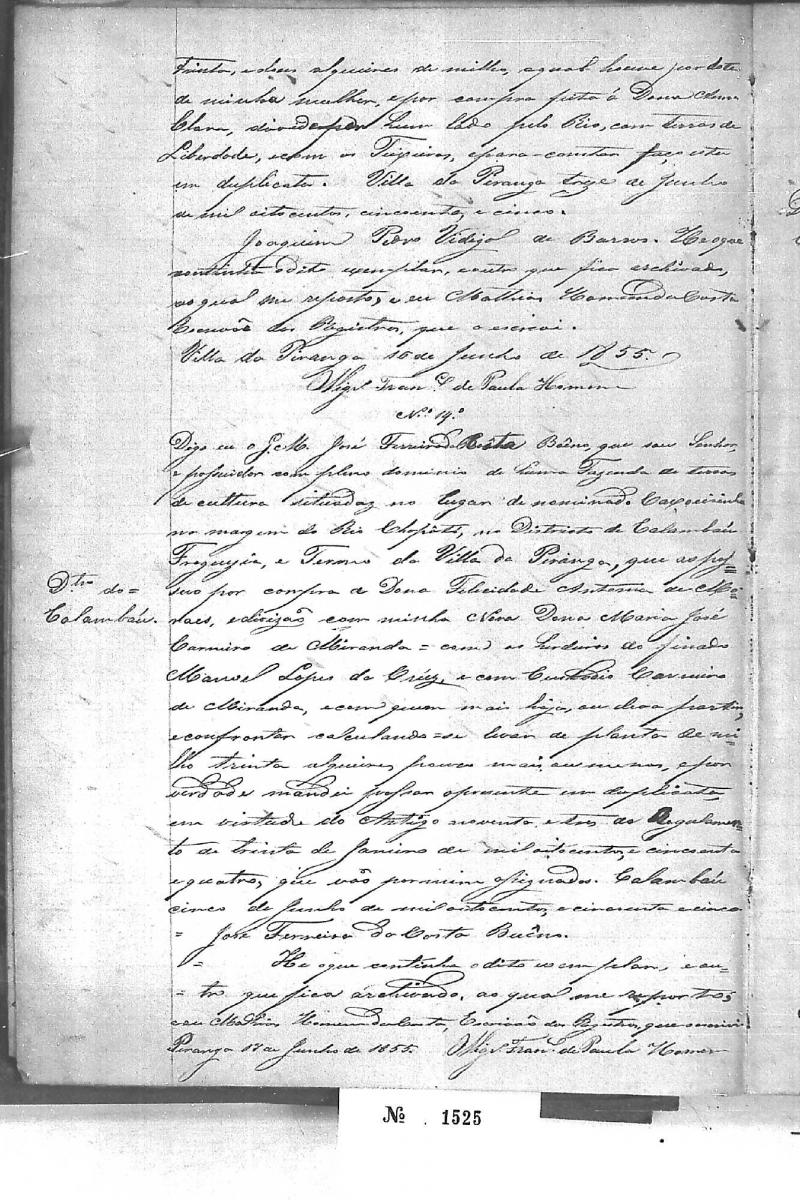 trinta, e dous alqueires de milho, a qual houve por dote
de minha mulher, e por compra feita á Dona Anna
Clara, divide por hum lado pelo Rio, com terras de
Liberdade, e com os Teixeiras, e para constar faço este
em duplicata. Villa da Piranga treze de Junho
de mil oitocentos, cincoenta, e cinco.
Joaquim Pedro Vidigal de Barros. He o que
continha o dito exemplar, e outro que fica archivado,
ao qual me reporto, e eu Mathias Homem da Costa
Escrivão dos Registros, que o escrevi.
Villa da Piranga 16 de Junho de 1855.
Vigr.º Fran.co de Paula Homem
N.º 19.º
Digo eu o G. M. José Ferreira da Costa Buêno, que sou Senhor,
e possuidor com pleno dominio de huma Fazenda de terras
de cultura situadas no lugar denominado Caxoeirinha
na margem do Rio Chopótó, no Districto de Calambáu
Freguezia, e Termo da Villa da Piranga, que as pos-
suo por compra a Dona Felicidade Antonia de Mo-
raes, e divizão com minha Nora Dona Maria José
Carneiro de Miranda = com os herdeiros do finado
Manoel Lopes da Crúz, e com Custodio Carneiro
de Miranda, e com quem mais haja, ou deva partir,
e confrontar calculando-se levar de planta de mi-
lho trinta alqueires pouco mais, ou menos, e por
verdade mandei passar o presente em duplicata,
em virtude do Artigo noventa e tres do Regulamen-
to de trinta de Janeiro de mil oitocentos, e cincoenta
e quatro, que vão por mim assignados. Calambáu
cinco de Junho de mil oitocentos, e cincoenta e cinco
= José Ferreira da Costa Buêno.
= He o que continha o dito exemplar, e ou-
= tro que fica archivado, ao qual me reporto,
e eu Mathias Homem da Costa, Escrivão dos Registros, que escrevi
Piranga 17 de Junho de 1855. Vigr.º Fran.co de Paula Homem
D.tro do =
Calambáu.
Nº 1525